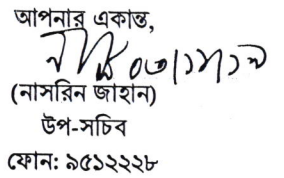 আপনার একান্ত,
(নাসরিন জাহান)
উপ-সচিব
ফোন: ৯৫১২২২৮